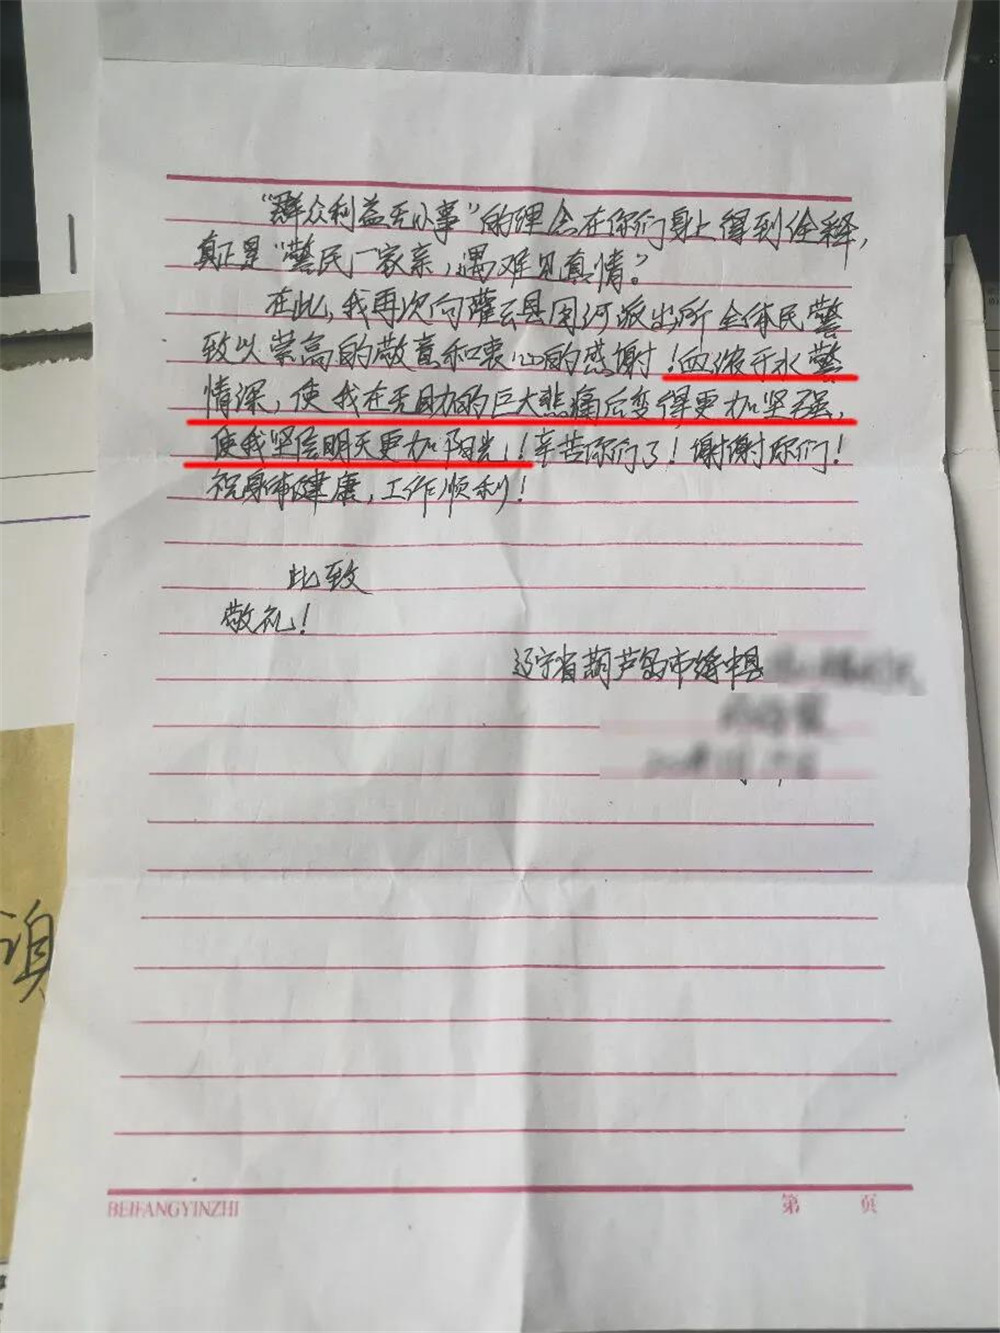 “群众利益无小事”的理念在你们身上得到诠释，
真正是“警民一家亲，遇难见真情。”
在此，我再次向灌云县图河派出所全体民警
致以崇高的敬意和衷心的感谢！血浓于水警
情深，使我在无助的巨大悲痛后变得更加坚强，
使我坚信明天更加阳光！辛苦你们了！谢谢你们！
祝身体健康，工作顺利！
此致
敬礼！
辽宁省葫芦岛市绥中县
BEIFANGYINZHI
第 页